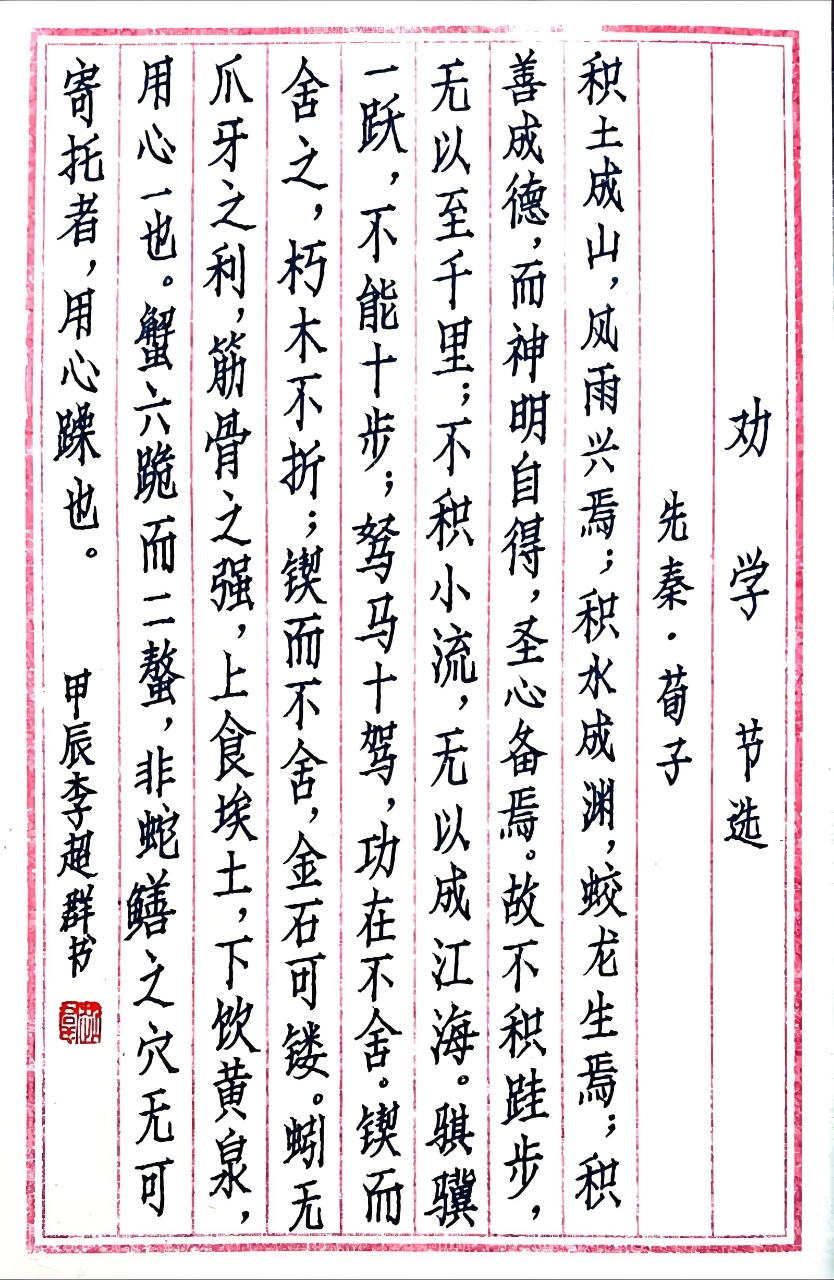 劝学 节选
先秦·荀子
积土成山，风雨兴焉；积水成渊，蛟龙生焉；积
善成德，而神明自得，圣心备焉。故不积跬步，
无以至千里；不积小流，无以成江海。骐骥
一跃，不能十步；驽马十驾，功在不舍。锲而
舍之，朽木不折；锲而不舍，金石可镂。蚓无
爪牙之利，筋骨之强，上食埃土，下饮黄泉，
用心一也。蟹六跪而二螯，非蛇鳝之穴无可
寄托者，用心躁也。
甲辰李超群书